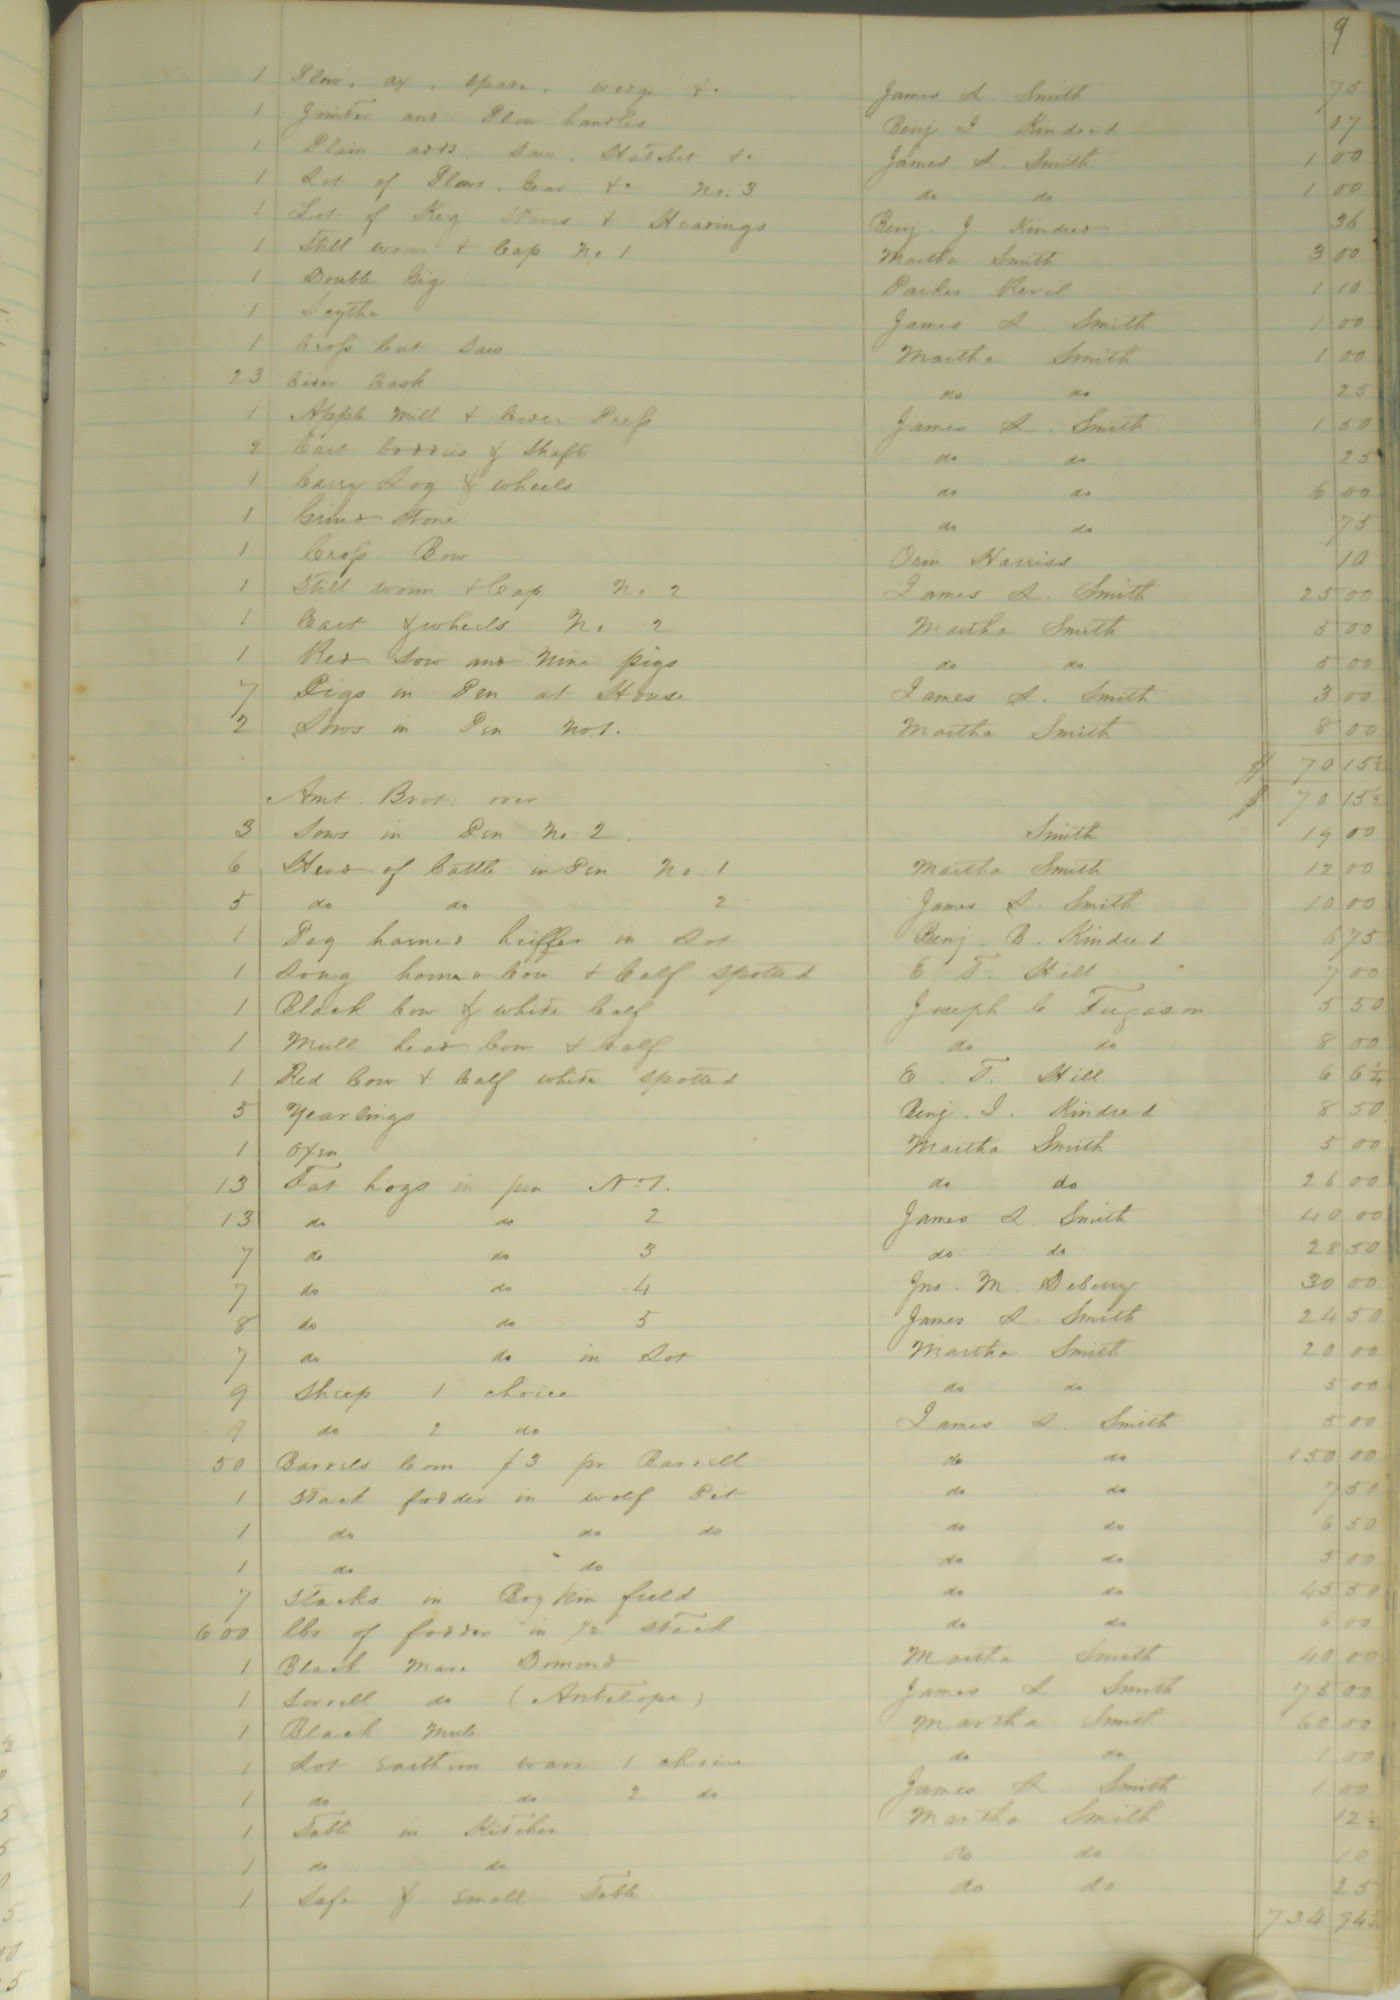 9
1 Plow, ax, spade, wedge &c James S Smith 75
1 Jointer and Plow handles Benj I Kindred 07
1 Plain adds, Saw, Hatchet &c James S. Smith 1 00
1 Lot of Plows, Gear &c No. 3 do do 1 00
1 Lot of Keg Staves & Headings Benj. J Kindred 36
1 Still worm & Cap No 1 Martha Smith 3 00
1 Double Gig Parker Revel 1 10
1 Scythe James S Smith 1 00
1 Cross Cut Saw Martha Smith 1 00
23 Cider Cask do do 25
1 Apple Mill & Cider Press James S. Smith 1 50
2 Cart boddies & Shafts do do 25
1 Carry Log & wheels do do 6 00
1 Grind Stone do do 75
1 Cross Bow Orin Harriss 10
1 Still worm & Cap No 2 James S. Smith 25 00
1 Cart & wheels No 2 Martha Smith 5 00
1 Red Sow and Nine pigs do do 5 00
7 Pigs in Pen at House James S. Smith 3 00
2 Sows in Pen No.1. Martha Smith 8 00
$ 70 15½
Amt. Brot. over $ 70 15½
3 Sows in Pen No. 2. Smith 19 00
6 Head of Cattle in Pen No. 1 Martha Smith 12 00
5 do do 2 James S. Smith 10 00
1 Peg horned heiffer in Lot Benj. B. Kindred 6 75
1 Long horned Cow & Calf spotted E T. Hill 7 00
1 Black Cow & white Calf Joseph C Fugason 5 50
1 Mull head Cow & Calf do do 8 00
1 Red Cow & Calf white spotted E. T. Hill 6 6¼
5 Yearlings Benj. I. Kindred 8 50
1 Oxen Martha Smith 5 00
13 Fat hogs in pen No 1. do do 26 00
13 do do 2 James S. Smith 40 00
7 do do 3 do do 28 50
7 do do 4 Jno. M. Deberry 30 00
8 do do 5 James S. Smith 24 50
7 do do in Lot Martha Smith 20 00
9 Sheep 1 choice do do 5 00
9 do 2 do James S. Smith 5 00
50 Barrels Corn $3 pr Barrell do do 150 00
1 Stack fodder in wolf Pit do do 7 50
1 do do do do do 6 50
1 do do do do 5 00
7 Stacks in Boykin field do do 45 50
600 lbs of fodder in ½ Stack do do 6 00
1 Black Mare Domond Martha Smith 40 00
1 Sorrell do (Antelope) James S Smith 75 00
1 Black Mule Martha Smith 60 00
1 Lot earthern ware 1 choice do do 1 00
1 do do 2 do James S. Smith 1 00
1 Table in Kitchen Martha Smith 12½
1 do do do do 10
1 Safe & Small Table do do 25
734 94½